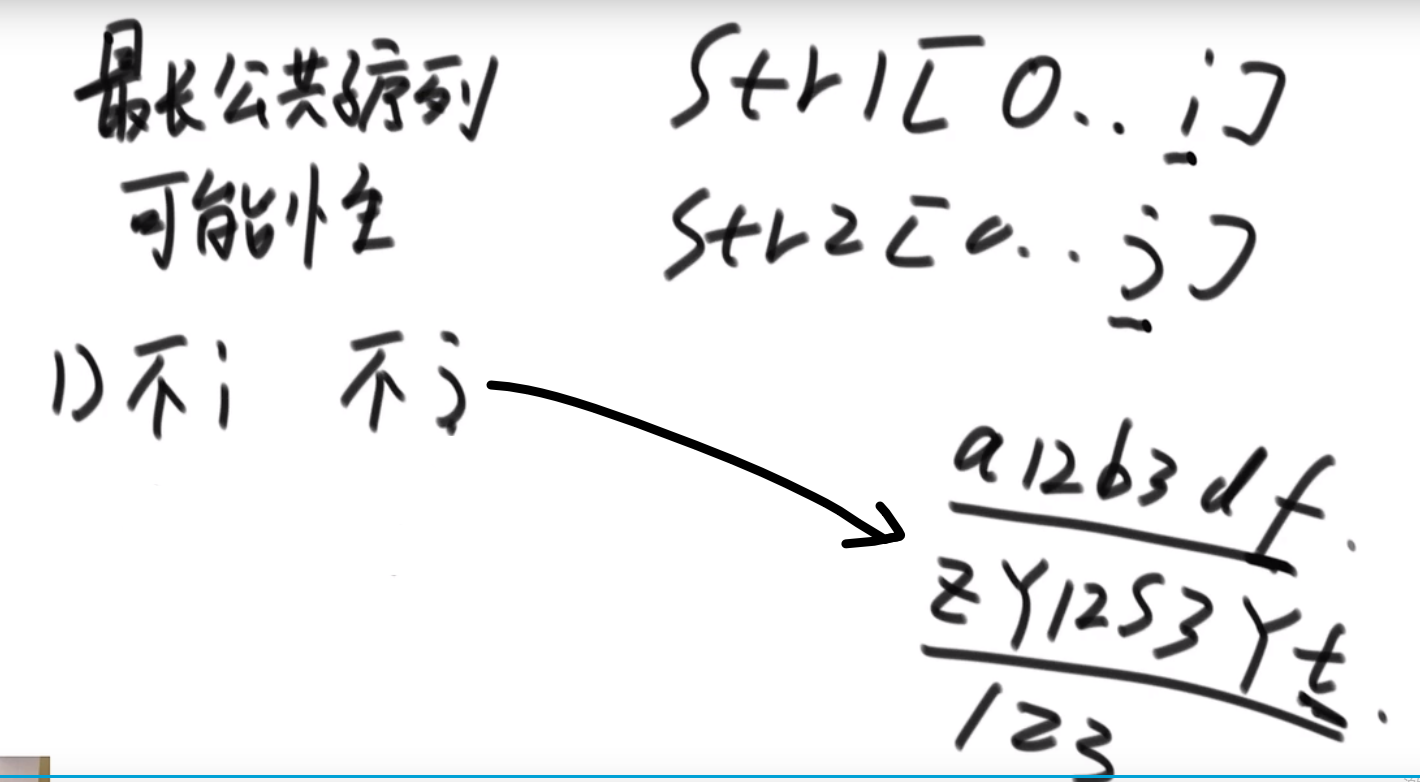 最长公共子序列
可能性
str1[0...i]
str2[0...j]
1)不i 不j
a12b3df
zY12S3Yt
123